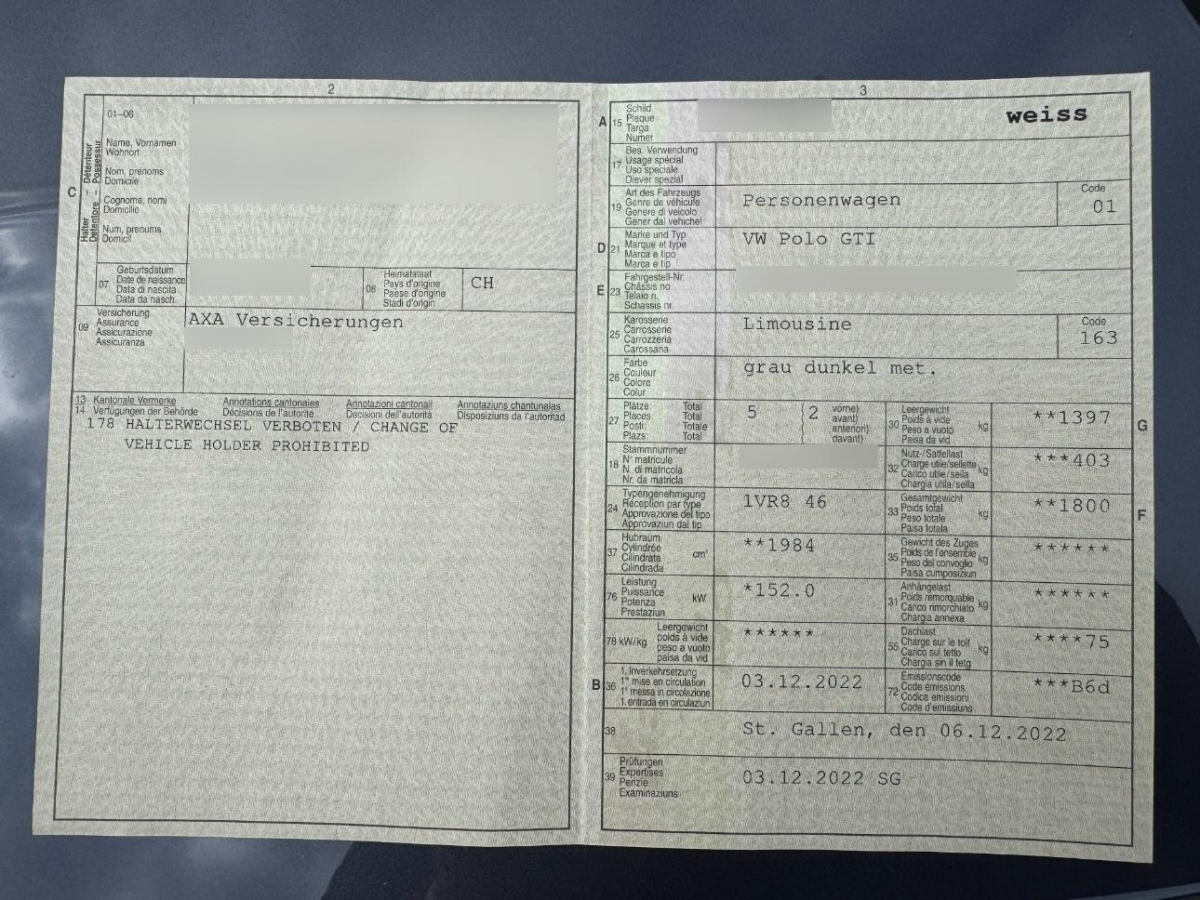 2
01-06
C
Halter - Détenteur
Detentore - Possessur
Name, Vornamen
Wohnort
Nom, prénoms
Domicile
Cognome, nomi
Domicilio
Num, prenums
Domicil
07
Geburtsdatum
Date de naissance
Data di nascita
Data da nasch.
08
Heimatstaat
Pays d'origine
Paese d'origine
Stadi d'origin
CH
09
Versicherung
Assurance
Assicurazione
Assicuranza
AXA Versicherungen
13 Kantonale Vermerke Annotations cantonales Annotazioni cantonali Annotaziuns chantunalas
14 Verfügungen der Behörde Décisions de l'autorité Decisioni dell'autorità Disposiziuns da l'autoritad
178 HALTERWECHSEL VERBOTEN / CHANGE OF
VEHICLE HOLDER PROHIBITED
3
A 15
Schild
Plaque
Targa
Numer
weiss
17
Bes. Verwendung
Usage spécial
Uso speciale
Diever spezial
19
Art des Fahrzeugs
Genre de véhicule
Genere di veicolo
Gener dal vehichel
Personenwagen
Code
01
D 21
Marke und Typ
Marque et type
Marca e tipo
Marca e tip
VW Polo GTI
E 23
Fahrgestell-Nr.
Châssis no
Telaio n.
Schassis nr.
25
Karosserie
Carrosserie
Carrozzeria
Carossaria
Limousine
Code
163
26
Farbe
Couleur
Colore
Colur
grau dunkel met.
27
Plätze Total
Places Total
Posti: Totale
Plazs: Total
5 ( 2
vorne)
avant)
anteriori)
davant)
30
Leergewicht
Poids à vide
Peso a vuoto
Paisa da vid
kg
**1397
G
18
Stammnummer
N° matricule
N. di matricola
Nr. da matricla
32
Nutz-/Sattellast
Charge utile/sellette
Carico utile/sella
Chargia utila/sella
kg
***403
24
Typengenehmigung
Réception par type
Approvazione del tipo
Approvaziun dal tip
1VR8 46
33
Gesamtgewicht
Poids total
Peso totale
Paisa totala
kg
**1800
F
37
Hubraum
Cylindrée
Cilindrata
Cilindrada
cm³
**1984
35
Gewicht des Zuges
Poids de l'ensemble
Peso del convoglio
Paisa cumposiziun
kg
******
76
Leistung
Puissance
Potenza
Prestaziun
kW
*152.0
31
Anhängelast
Poids remorquable
Carico rimorchiato
Chargia annexa
kg
******
78 kW/kg
Leergewicht
poids à vide
peso a vuoto
paisa da vid
******
55
Dachlast
Charge sur le toit
Carico sul tetto
Chargia sin il tetg
kg
****75
B 36
1. Inverkehrsetzung
1re mise en circulation
1a messa in circolazione
1. entrada en circulaziun
03.12.2022
72
Emissionscode
Code émissions
Codice emissioni
Code d'emissiuns
***B6d
38
St. Gallen, den 06.12.2022
39
Prüfungen
Expertises
Perizie
Examinaziuns
03.12.2022 SG